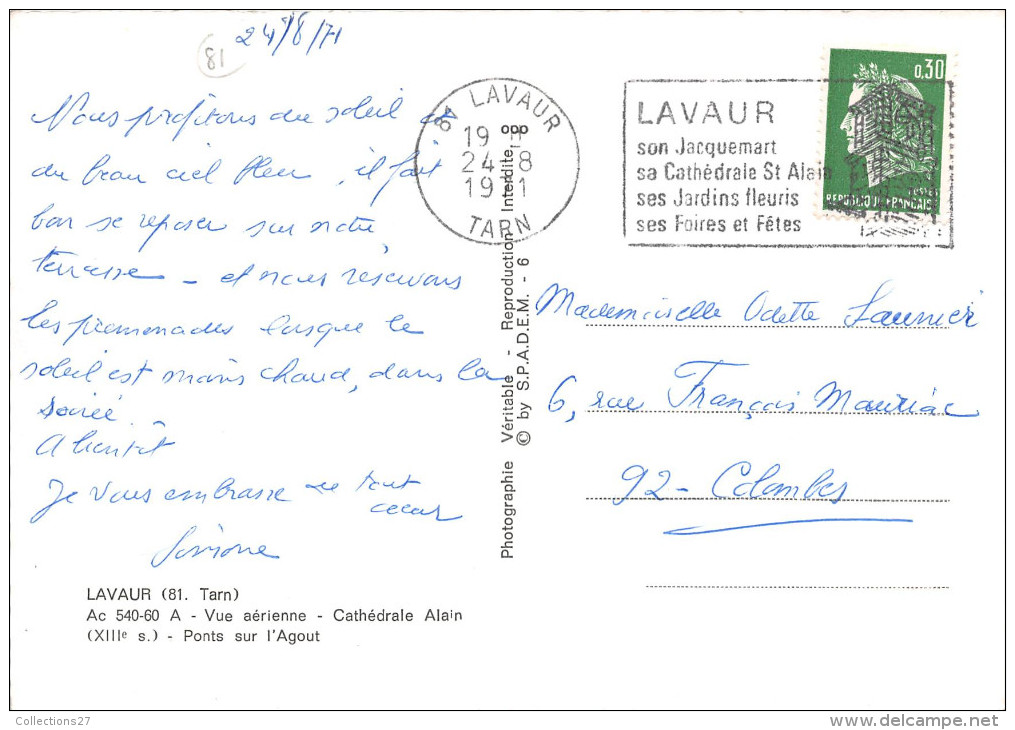 24/8/71
81
Nous profitons du soleil et
du beau ciel bleu, il fait
bon se reposer sur notre
terrasse - et nous réservons
les promenades lorsque le
soleil est moins chaud, dans la
soirée.
A bientôt
Je vous embrasse de tout
cœur
Simone
LAVAUR (81. Tarn)
Ac 540-60 A - Vue aérienne - Cathédrale Alain
(XIIIe s.) - Ponts sur l'Agout
Photographie Véritable - Reproduction Interdite
© by S.P.A.D.E.M. - 6
81 LAVAUR
19 H
24-8
1971
TARN
LAVAUR
son Jacquemart
sa Cathédrale St Alain
ses Jardins fleuris
ses Foires et Fêtes
0,30
POSTES
REPUBLIQUE FRANCAISE
Mademoiselle Odette Saunier
6, rue François Mauriac
92 - Colombes
Collections27
www.delcampe.net